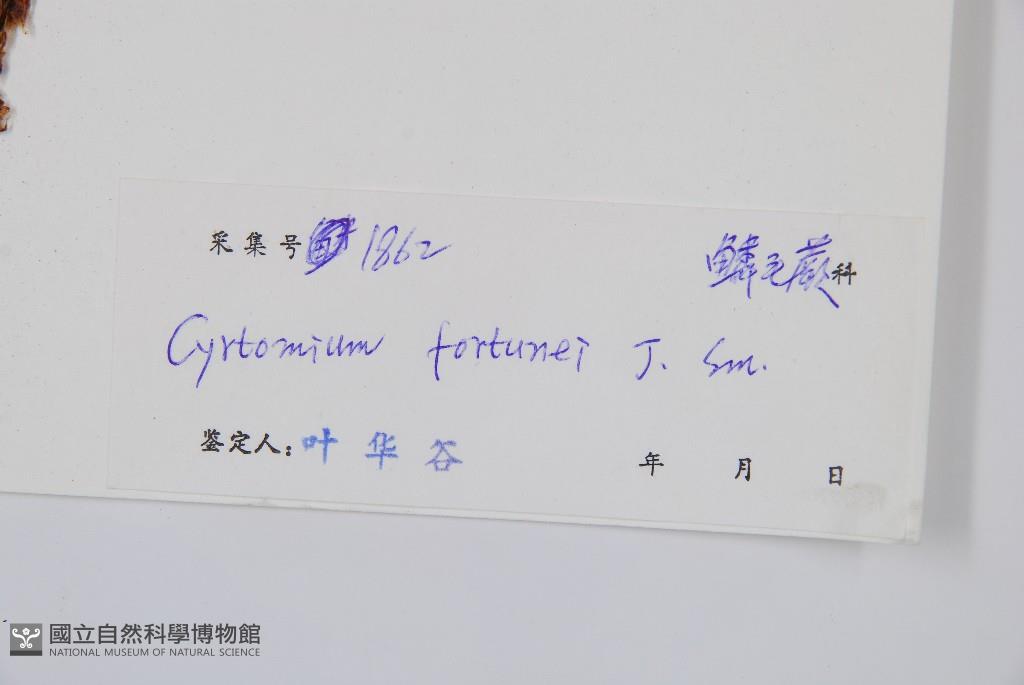 采集号 1862 鳞毛蕨科
Cyrtomium fortunei J. Sm.
鉴定人：叶华谷 年 月 日
國立自然科學博物館
NATIONAL MUSEUM OF NATURAL SCIENCE